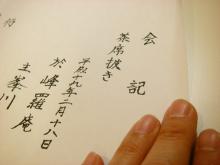 会記
茶席披き
平成十九年二月十八日
於峰羅庵
主峯川